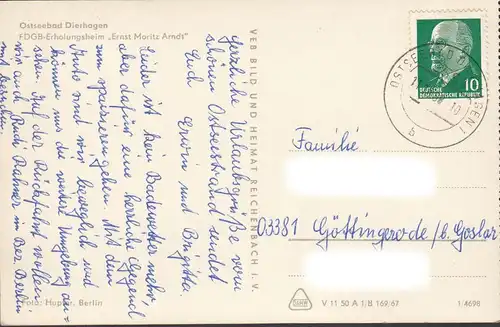 Ostseebad Dierhagen
FDGB-Erholungsheim „Ernst Moritz Arndt"
Herzliche Urlaubsgrüße vom
schönen Ostseestrand sendet
Euch Erwin und Brigitta.
Leider ist kein Badewetter mehr,
aber dafür eine herrliche Gegend
zum spazieren gehen. Mit dem
Auto sind wir beweglich und
können uns die weitere Umgebung an-
sehen. Auf der Rückfahrt wollen
wir auch Rudi in Berlin
mit besuchen.
Foto: Berlin
VEB BILD UND HEIMAT REICHENBACH I. V.
10
DEUTSCHE
DEMOKRATISCHE REPUBLIK
OSTSEEBAD
b
Familie
03381 Göttingerode /b. Goslar
V 11 50 A 1/B 169/67
1/4698